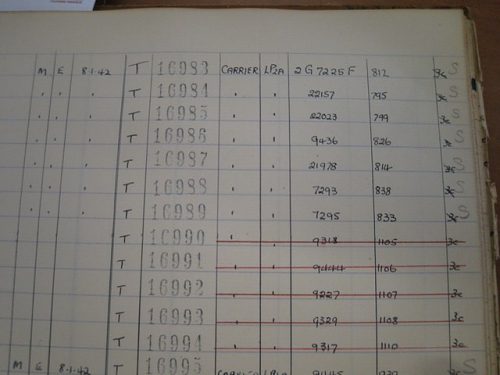 M E 8.1.42 T 16983 CARRIER LP2A 2G7225F 812 3c S
" " " T 16984 " " 22157 795 3c S
" " " T 16985 " " 22023 799 3c S
" " " T 16986 " " 9436 826 3c S
" " " T 16987 " " 21978 814 3c S
" " " T 16988 " " 7293 838 3c S
" " " T 16989 " " 7295 833 3c S
T 16990 " " 9318 1105 3c
T 16991 " " 9444 1106 3c
T 16992 " " 9227 1107 3c
T 16993 " " 9329 1108 3c
T 16994 " " 9317 1110 3c
M E 8.1.42 T 16995 S